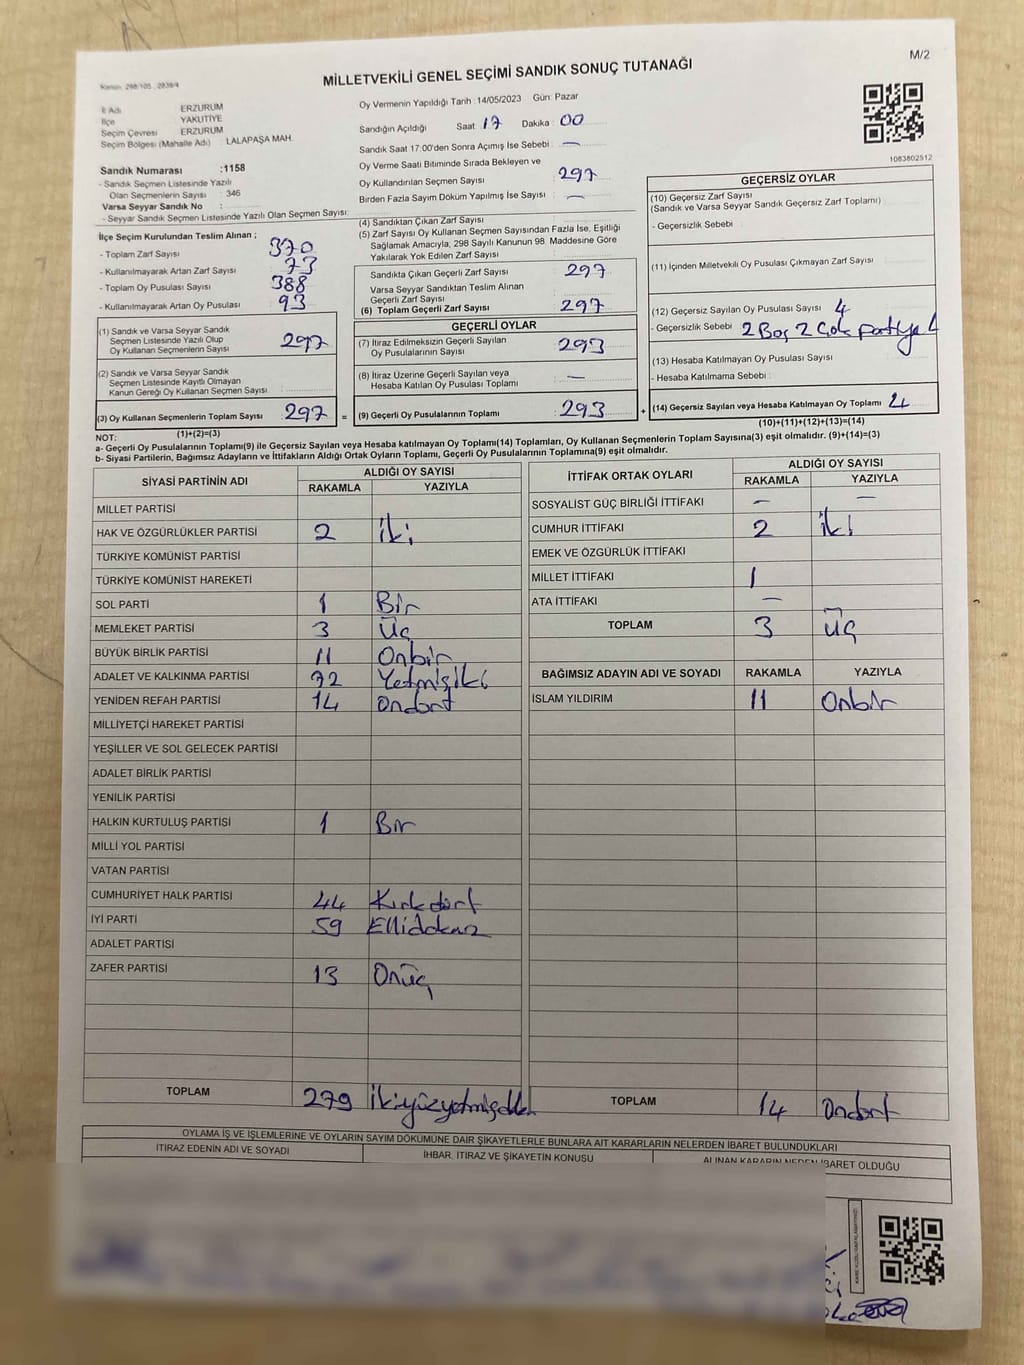 M/2
MİLLETVEKİLİ GENEL SEÇİMİ SANDIK SONUÇ TUTANAĞI
İl Adı ERZURUM
İlçe YAKUTİYE
Seçim Çevresi ERZURUM
Seçim Bölgesi (Mahalle Adı) : LALAPAŞA MAH.
Oy Vermenin Yapıldığı Tarih : 14/05/2023 Gün: Pazar
Sandığın Açıldığı Saat 17 Dakika : 00
Sandık Saat 17:00'den Sonra Açımış İse Sebebi : —
Oy Verme Saati Bitiminde Sırada Bekleyen ve
Oy Kullandırılan Seçmen Sayısı : 297
Birden Fazla Sayım Döküm Yapılmış İse Sayısı : —
1083802512
Sandık Numarası :1158
- Sandık Seçmen Listesinde Yazılı
Olan Seçmenlerin Sayısı : 346
Varsa Seyyar Sandık No :
- Seyyar Sandık Seçmen Listesinde Yazılı Olan Seçmen Sayısı:
İlçe Seçim Kurulundan Teslim Alınan ;
- Toplam Zarf Sayısı : 370
- Kullanılmayarak Artan Zarf Sayısı : 73
- Toplam Oy Pusulası Sayısı : 388
- Kullanılmayarak Artan Oy Pusulası : 93
(1) Sandık ve Varsa Seyyar Sandık
Seçmen Listesinde Yazılı Olup
Oy Kullanan Seçmenlerin Sayısı : 297
(2) Sandık ve Varsa Seyyar Sandık
Seçmen Listesinde Kayıtlı Olmayan
Kanun Gereği Oy Kullanan Seçmen Sayısı :
(3) Oy Kullanan Seçmenlerin Toplam Sayısı : 297 =
(1)+(2)=(3)
(4) Sandıktan Çıkan Zarf Sayısı :
(5) Zarf Sayısı Oy Kullanan Seçmen Sayısından Fazla İse, Eşitliği
Sağlamak Amacıyla, 298 Sayılı Kanunun 98. Maddesine Göre
Yakılarak Yok Edilen Zarf Sayısı :
Sandıkta Çıkan Geçerli Zarf Sayısı : 297
Varsa Seyyar Sandıktan Teslim Alınan
Geçerli Zarf Sayısı :
(6) Toplam Geçerli Zarf Sayısı : 297
GEÇERLİ OYLAR
(7) İtiraz Edilmeksizin Geçerli Sayılan
Oy Pusulalarının Sayısı : 293
(8) İtiraz Üzerine Geçerli Sayılan veya
Hesaba Katılan Oy Pusulası Toplamı : —
(9) Geçerli Oy Pusulalarının Toplamı : 293 +
GEÇERSİZ OYLAR
(10) Geçersiz Zarf Sayısı
(Sandık ve Varsa Seyyar Sandık Geçersiz Zarf Toplamı) :
- Geçersizlik Sebebi :
(11) İçinden Milletvekili Oy Pusulası Çıkmayan Zarf Sayısı :
(12) Geçersiz Sayılan Oy Pusulası Sayısı : 4
- Geçersizlik Sebebi : 2 Boş 2 Çok partiye
(13) Hesaba Katılmayan Oy Pusulası Sayısı :
- Hesaba Katılmama Sebebi :
(14) Geçersiz Sayılan veya Hesaba Katılmayan Oy Toplamı : 4
(10)+(11)+(12)+(13)=(14)
NOT:
a- Geçerli Oy Pusulalarının Toplamı(9) ile Geçersiz Sayılan veya Hesaba katılmayan Oy Toplamı(14) Toplamları, Oy Kullanan Seçmenlerin Toplam Sayısına(3) eşit olmalıdır. (9)+(14)=(3)
b- Siyasi Partilerin, Bağımsız Adayların ve İttifakların Aldığı Ortak Oyların Toplamı, Geçerli Oy Pusulalarının Toplamına(9) eşit olmalıdır.
SİYASİ PARTİNİN ADI ALDIĞI OY SAYISI
RAKAMLA YAZIYLA
MİLLET PARTİSİ
HAK VE ÖZGÜRLÜKLER PARTİSİ 2 iki
TÜRKİYE KOMÜNİST PARTİSİ
TÜRKİYE KOMÜNİST HAREKETİ
SOL PARTİ 1 Bir
MEMLEKET PARTİSİ 3 Üç
BÜYÜK BİRLİK PARTİSİ 11 Onbir
ADALET VE KALKINMA PARTİSİ 72 Yetmişiki
YENİDEN REFAH PARTİSİ 14 Ondört
MİLLİYETÇİ HAREKET PARTİSİ
YEŞİLLER VE SOL GELECEK PARTİSİ
ADALET BİRLİK PARTİSİ
YENİLİK PARTİSİ
HALKIN KURTULUŞ PARTİSİ 1 Bir
MİLLİ YOL PARTİSİ
VATAN PARTİSİ
CUMHURİYET HALK PARTİSİ 44 Kırkdört
İYİ PARTİ 59 Ellidokuz
ADALET PARTİSİ
ZAFER PARTİSİ 13 Onüç
TOPLAM 279
İTTİFAK ORTAK OYLARI ALDIĞI OY SAYISI
RAKAMLA YAZIYLA
SOSYALİST GÜÇ BİRLİĞİ İTTİFAKI — —
CUMHUR İTTİFAKI 2 iki
EMEK VE ÖZGÜRLÜK İTTİFAKI
MİLLET İTTİFAKI 1
ATA İTTİFAKI —
TOPLAM 3 üç
BAĞIMSIZ ADAYIN ADI VE SOYADI RAKAMLA YAZIYLA
İSLAM YILDIRIM 11 Onbir
TOPLAM 14 Ondört
OYLAMA İŞ VE İŞLEMLERİNE VE OYLARIN SAYIM DÖKÜMÜNE DAİR ŞİKAYETLERLE BUNLARA AİT KARARLARIN NELERDEN İBARET BULUNDUKLARI
İTİRAZ EDENİN ADI VE SOYADI İHBAR, İTİRAZ VE ŞİKAYETİN KONUSU ALINAN KARARIN NEDEN İBARET OLDUĞU